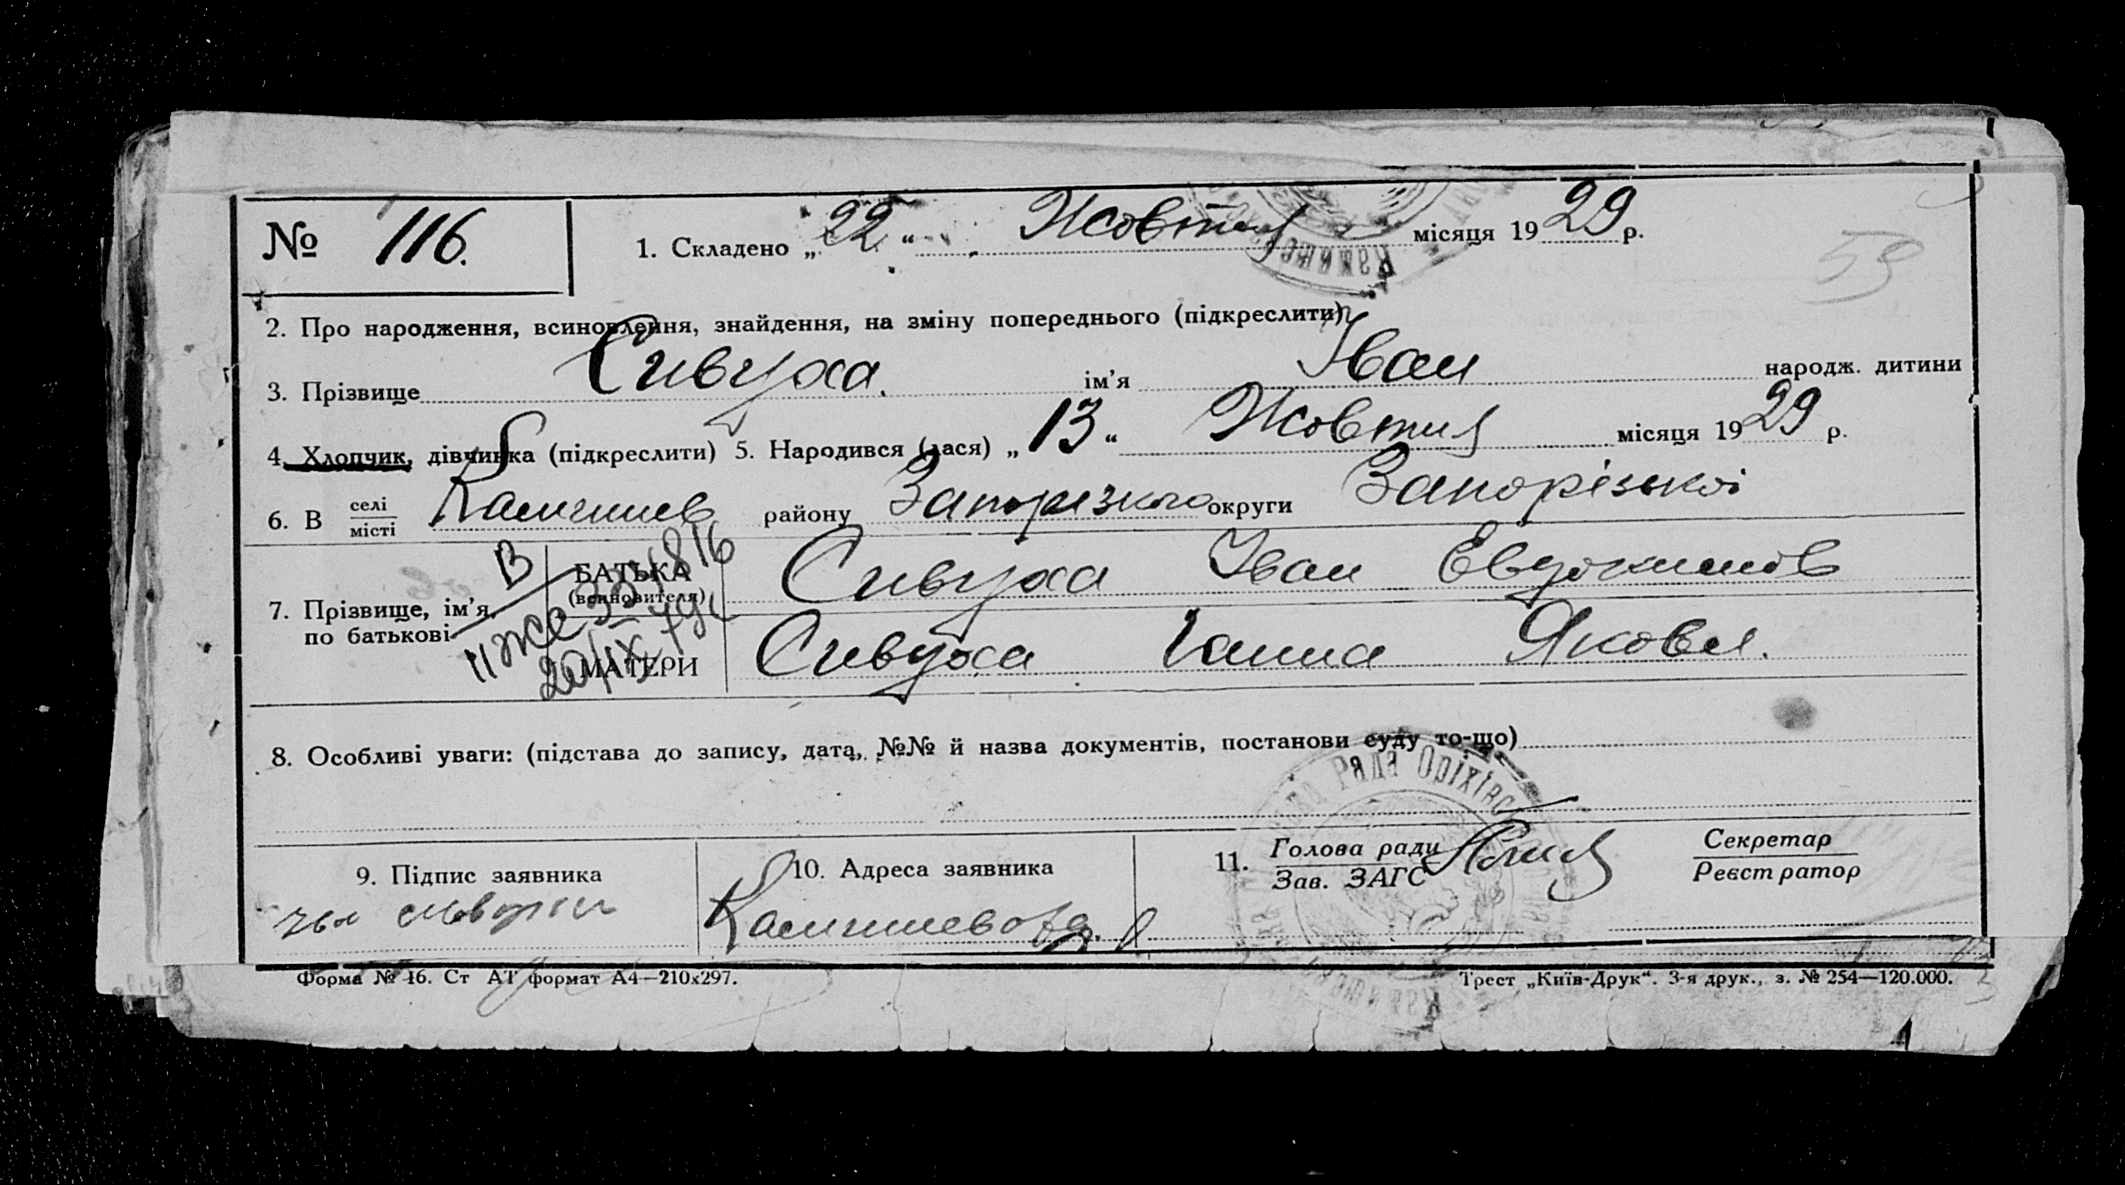 № 116.
1. Складено „22“ Жовтня місяця 1929 р.
59
2. Про народження, всиновлення, знайдення, на зміну попереднього (підкреслити)
3. Прізвище Сивуха. ім’я Іван народж. дитини
4. Хлопчик, дівчинка (підкреслити) 5. Народився (лася) „13“ Жовтня місяця 1929 р.
6. В селі
місті
району Запорізького округи Запорізької
7. Прізвище, ім’я, по батькові
БАТЬКА (всиновителя) Сивуха Іван Евдокимов
МАТЕРИ Сивуха Ганна Яковл.
8. Особливі уваги: (підстава до запису, дата, №№ й назва документів, постанови суду то-що)
Рада Оріхівс
9. Підпис заявника
10. Адреса заявника
11. Голова ради
Зав. ЗАГС
Секретар
Реєстратор
Форма № 16. Ст АТ формат А4—210х297.
Трест „Київ-Друк“. 3-я друк., з. № 254—120.000.